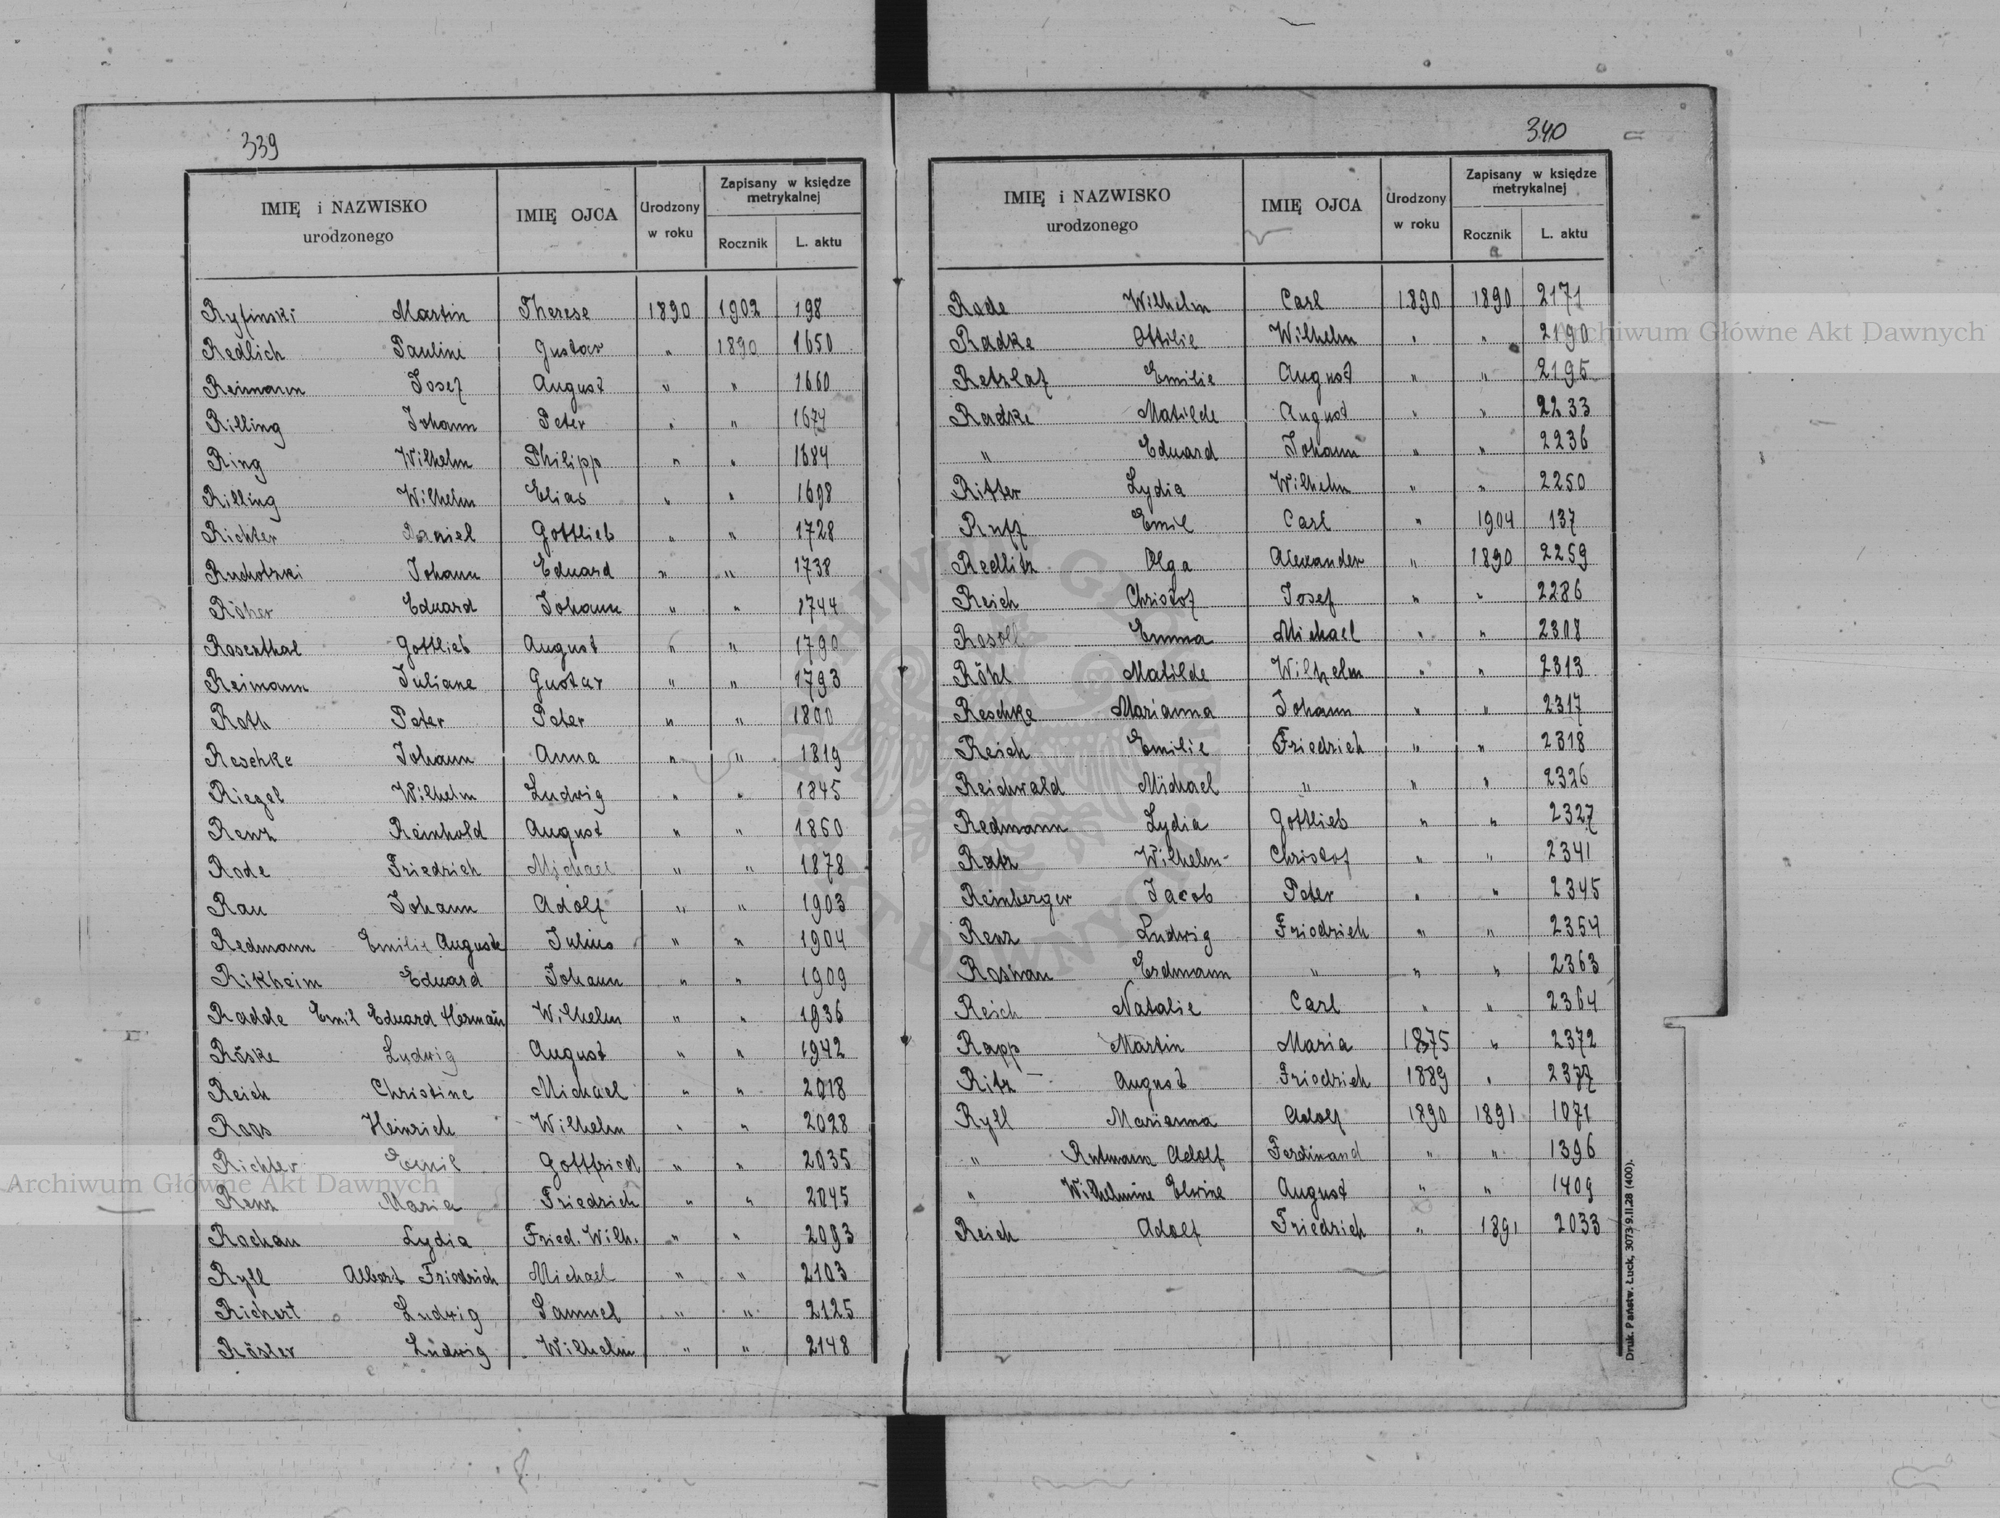 339
IMIĘ i NAZWISKO urodzonego IMIĘ OJCA Urodzony w roku Zapisany w księdze metrykalnej Rocznik L. aktu
Ryfinski Martin Therese 1890 1902 198
Redlich Pauline Gustav " 1890 1650
Reimann Josef August " " 1660
Rilling Johann Peter " " 1674
Ring Wilhelm Philipp " " 1684
Rilling Wilhelm Elias " " 1698
Richter Daniel Gottlieb " " 1728
Rucholzki Johann Eduard " " 1738
Röher Eduard Johann " " 1744
Rosenthal Gottlieb August " " 1790
Reimann Juliane Gustav " " 1793
Roth Peter Peter " " 1800
Reschke Johann Anna " " 1819
Riegel Wilhelm Ludwig " " 1845
Renz Reinhold August " " 1860
Rode Friedrich Michael " " 1878
Rau Johann Adolf " " 1903
Redmann Emilie Auguste Julius " " 1904
Rikheim Eduard Johann " " 1909
Radde Emil Eduard Hermañ Wilhelm " " 1936
Röske Ludwig August " " 1942
Reich Christine Michael " " 2018
Roos Heinrich Wilhelm " " 2028
Richter Emil Gottfried " " 2035
Renz Maria Friedrich " " 2045
Rochau Lydia Fried. Wilh. " " 2093
Ryll Albert Friedrich Michael " " 2103
Richert Ludwig Samuel " " 2125
Röster Ludwig Wilhelm " " 2148
340
IMIĘ i NAZWISKO urodzonego IMIĘ OJCA Urodzony w roku Zapisany w księdze metrykalnej Rocznik L. aktu
Rode Wilhelm Carl 1890 1890 2171
Radke Ottilie Wilhelm " " 2190
Retzlaf Emilie August " " 2195
Radke Matilde August " " 2233
" Eduard Johann " " 2236
Ritter Lydia Wilhelm " " 2250
Ruff Emil Carl " 1904 137
Redlitz Olga Alexander " 1890 2259
Reich Christof Josef " " 2286
Rosoll Emma Michael " " 2308
Röhl Matilde Wilhelm " " 2313
Reschke Marianna Johann " " 2317
Reich Emilie Friedrich " " 2318
Reichwald Michael " " " 2326
Redmann Lydia Gottlieb " " 2327
Ratz Wilhelm- Christof " " 2341
Reinberger Jacob Peter " " 2345
Renz Ludwig Friedrich " " 2354
Roshau Erdmann " " " 2363
Reich Natalie Carl " " 2364
Rapp Martin Maria 1875 " 2372
Ritz August Friedrich 1889 " 2377
Ryll Marianna Adolf 1890 1891 1071
" Rutmann Adolf Ferdinand " " 1396
" Wilhelmine Elvine August " " 1409
Reich Adolf Friedrich " 1891 2033
Druk. Państw. Łuck, 3073 9.II.28 (400).
Archiwum Główne Akt Dawnych
Archiwum Główne Akt Dawnych
ARCHIWUM GŁÓWNE AKT DAWNYCH